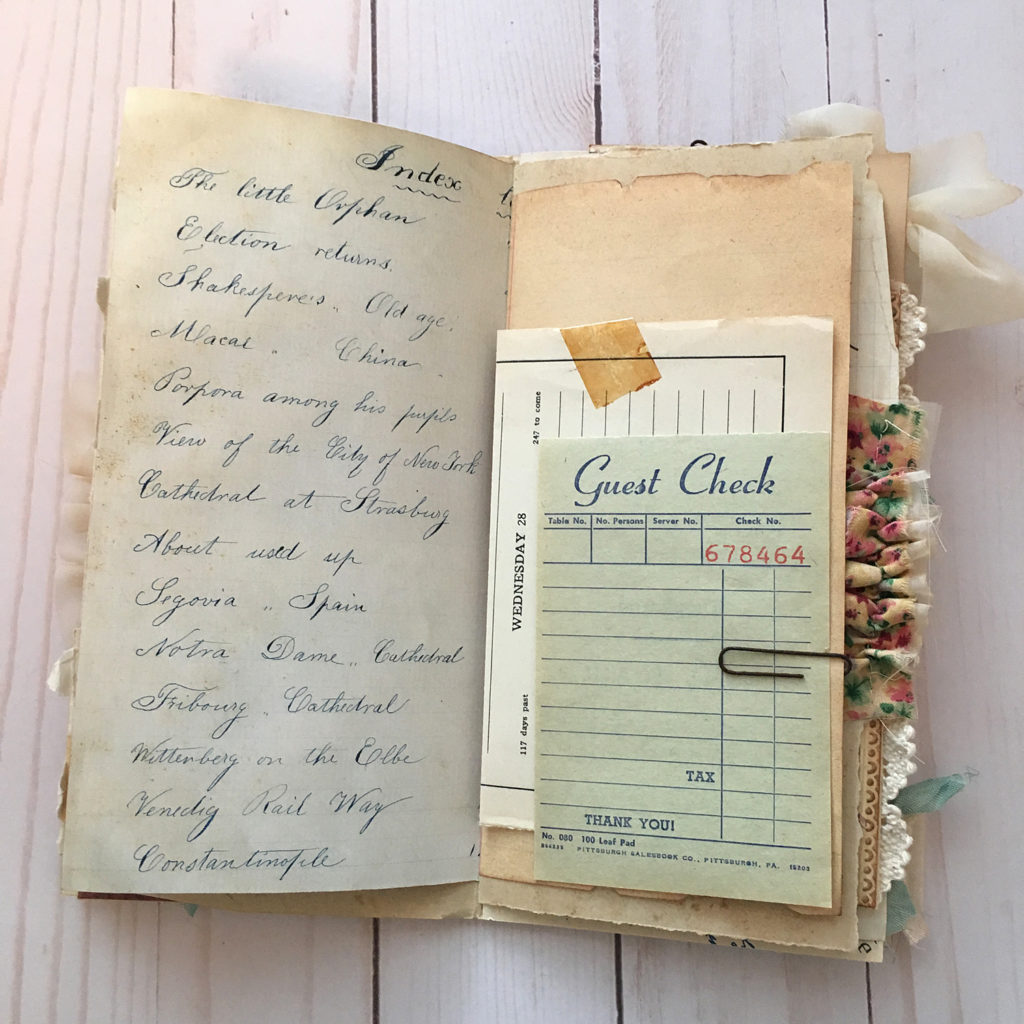 Index
The little Orphan
Election returns.
Shakespere's.. Old age.
Macae .. China
Porpora among his pupils
View of the City of New York
Cathedral at Strasburg
About used up
Segovia .. Spain
Notra Dame .. Cathedral
Fribourg .. Cathedral
Wittenberg on the Elbe
Venedig Rail Way
Constantinople
247 to come
WEDNESDAY 28
117 days past
Guest Check
Table No. No. Persons Server No. Check No.
678464
TAX
THANK YOU!
No. 080 100 Leaf Pad
PITTSBURGH SALESBOOK CO., PITTSBURGH, PA. 15203